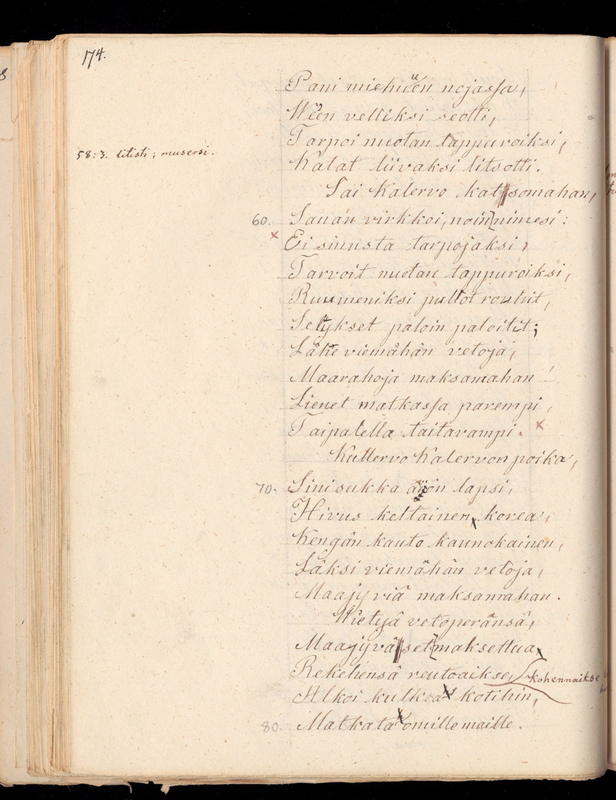 174.
Pani miehuen nojassa,
Ween velliksi seotti,
Tarpoi nuotan tappuroiksi,
58:3. litisti; musersi.
Kalat liivaksi litsotti.
Sai Kalervo katsomahan,
60. Sanan virkkoi, noin nimesi:
Ei sinusta tarpojaksi,
Tarvoit nuotan tappuroiksi,
Ruumeniksi pullot rouhit,
Selykset paloin paloitit;
Lähe viemähän vetoja,
Maarahoja maksamahan!
Lienet matkassa parempi,
Taipalella taitavampi.
Kullervo Kalervon poika,
70. Sinisukka äiön lapsi,
Hivus keltainen, korea,
Kengän kauto kaunokainen,
Läksi viemähän vetoja,
Maajyviä maksamahan.
Wietyä vetoperänsä,
Maajyväset maksettua,
Rekehensä reutoaikse, kohennaikse
Alkoi kulkea kotihin,
80. Matkata omille maille.